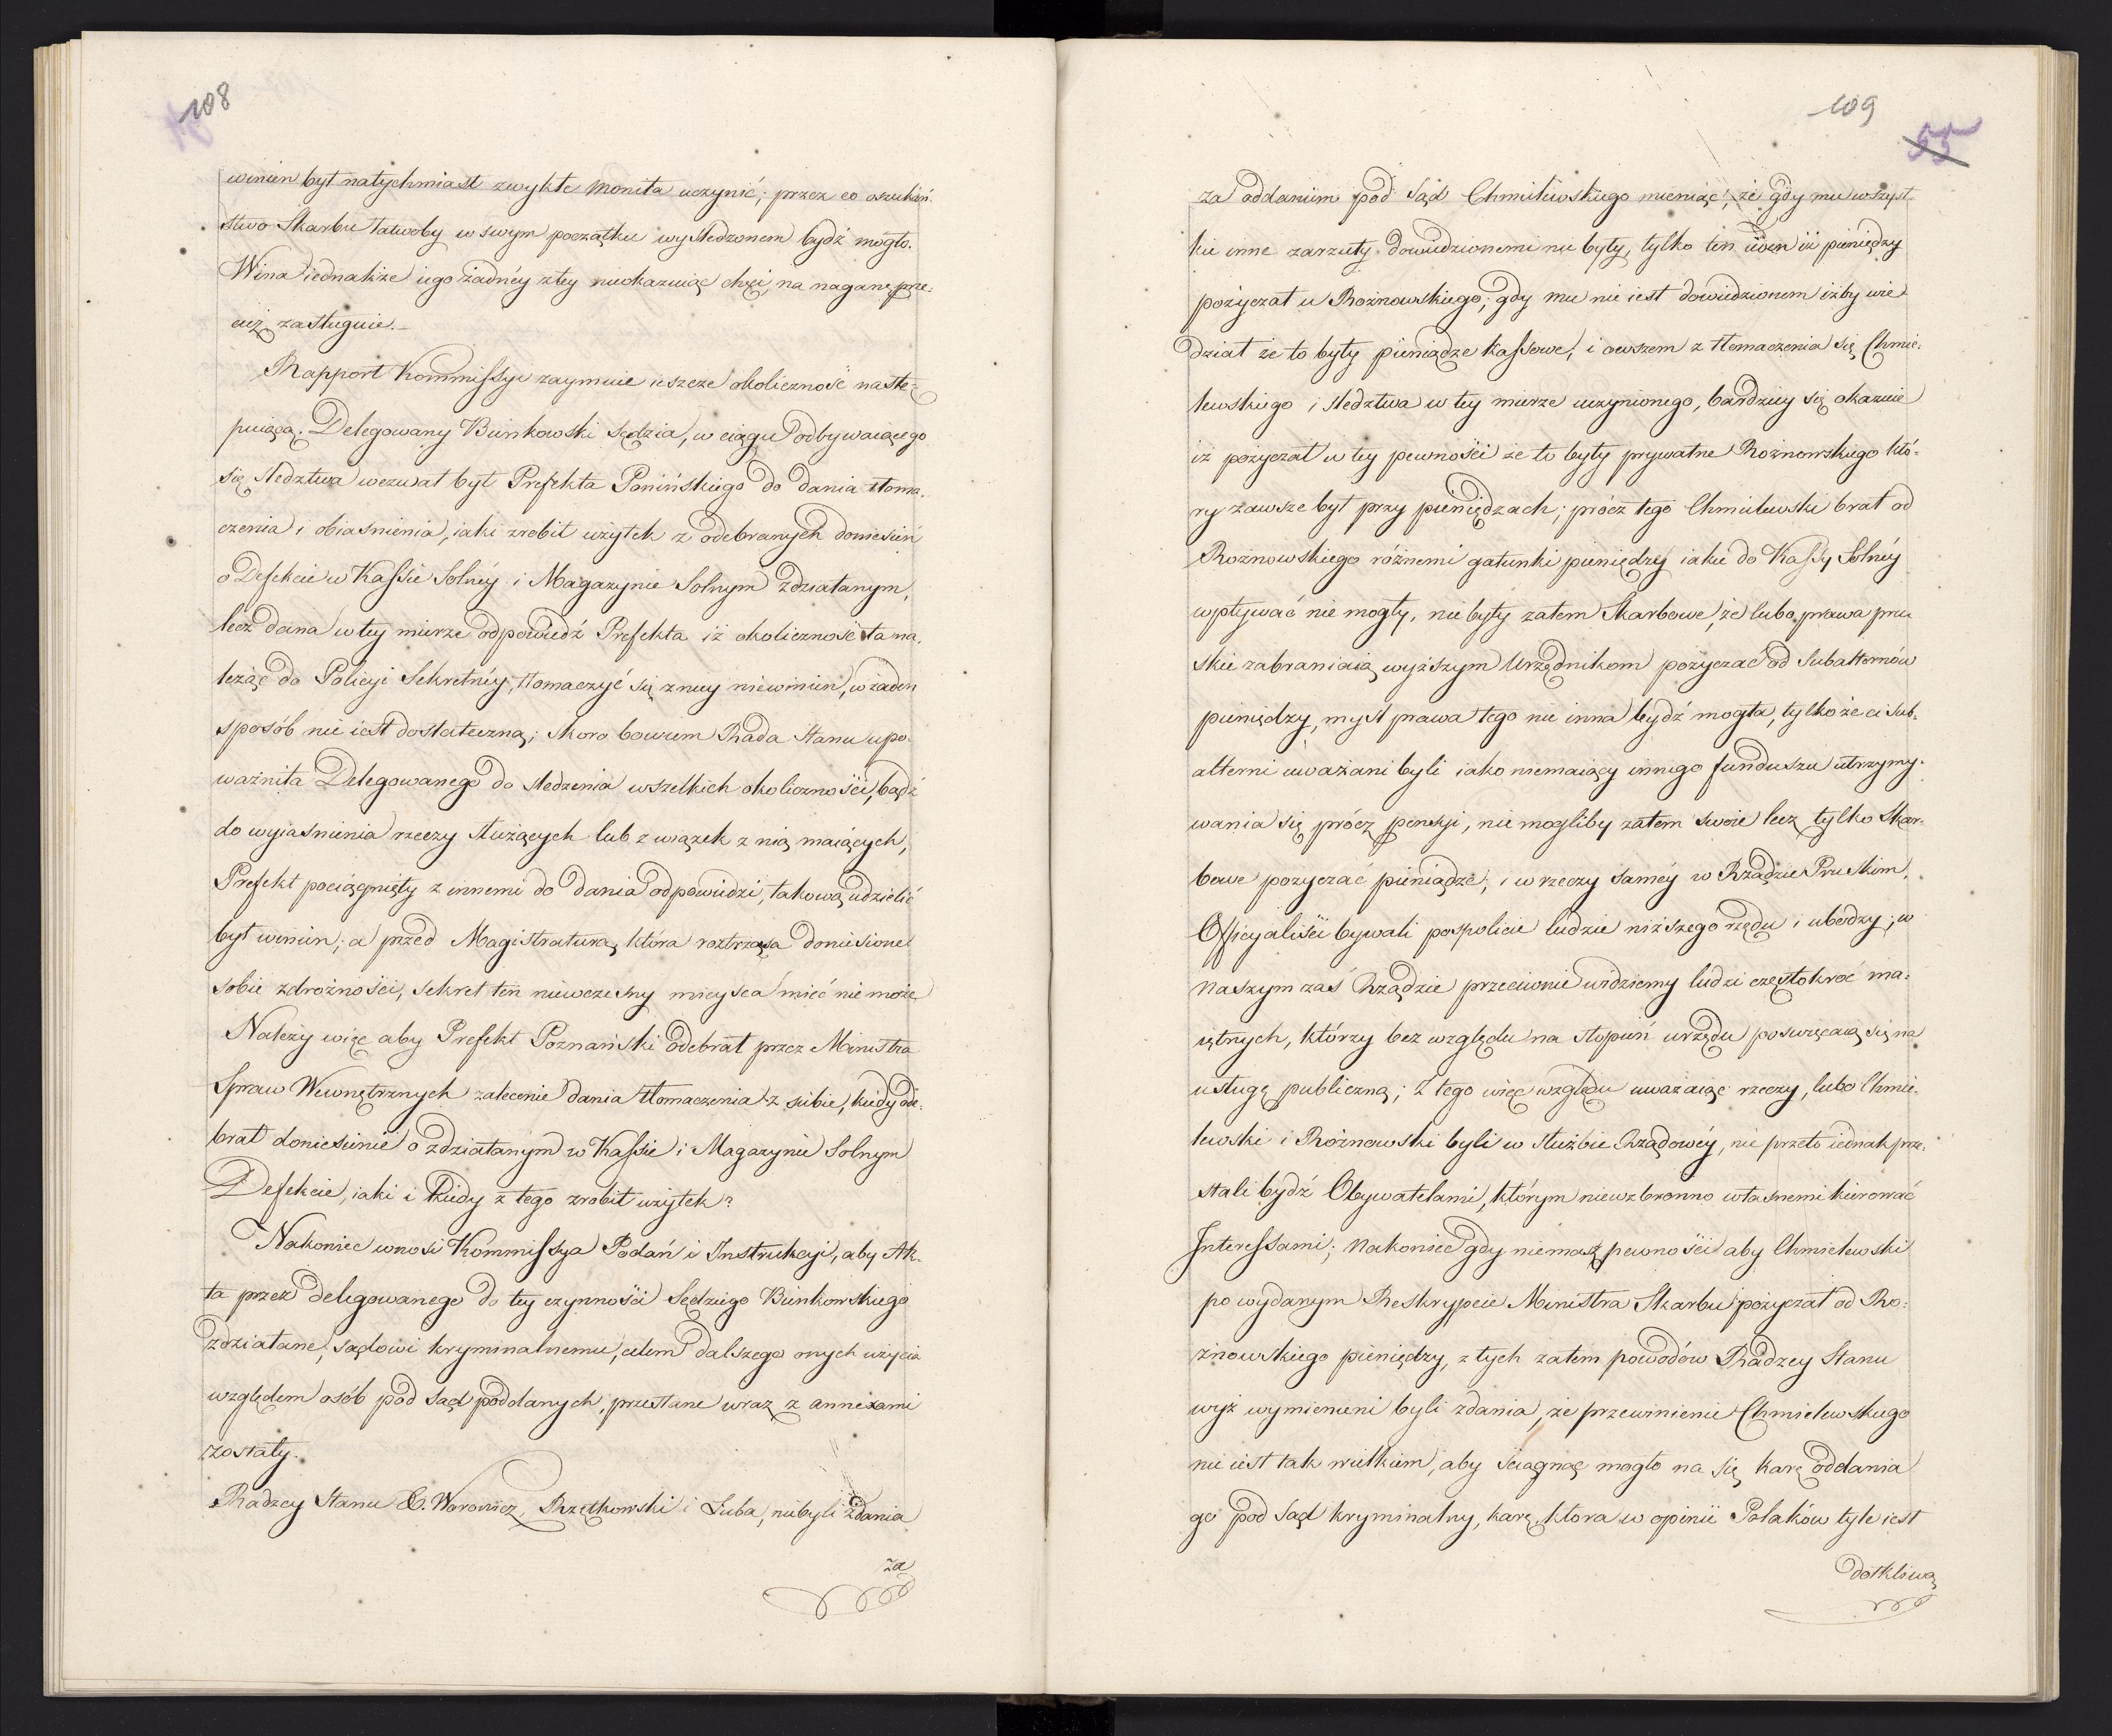 108
winien był natychmiast zwykłe Monita uczynić; przez co oszukań-
stwo Skarbu łatwoby w swym początku wyśledzonem bydź mogło.
Wina iednakże iego żadnéy złey nieokazuiąc chęci, na naganę prze-
cięż zasługuie.
Rapport Kommissyi zaymuie ieszcze okoliczność nastę-
puiącą. Delegowany Bienkowski Sędzia, w ciągu odbywaiącego
się śledztwa wezwał był Prefekta Ponińskiego do dania tłoma-
czenia i obiaśnienia, iaki zrobił użytek z odebranych doniesień
o Defekcie w Kassie Solnéy i Magazynie Solnym zdziałanym,
lecz dana w tey mierze odpowiedź Prefekta iż okoliczność ta na-
leżąc do Policyi Sekretnéy, tłomaczyć się z niey niewinien, w żaden
sposób nie iest dostateczną; skoro bowiem Rada Stanu upo-
ważniła Delegowanego do śledzenia wszelkich okoliczności, bądź
do wyiaśnienia rzeczy służących lub związek z nią maiących,
Prefekt pociągnięty z innemi do dania odpowiedzi, takową udzielić
był winien; a przed Magistraturą która roztrząsa doniesione
sobie zdrożności, sekret ten niewczesny mieysca mieć nie może
Należy więc aby Prefekt Poznański odebrał przez Ministra
Spraw Wewnętrznych zalecenie dania tłomaczenia z siebie, kiedy ode-
brał doniesienie o zdziałanym w Kassie i Magazynie Solnym
Defekcie, iaki i kiedy z tego zrobił użytek?
Nakoniec wnosi Kommissya Podań i Instrukcyi, aby Ak-
ta przez delegowanego do tey czynności Sędziego Bienkowskiego
zdziałane, sądowi kryminalnemu, celem dalszego onych użycia
względem osób pod sąd poddanych, przesłane wraz z annexami
zostały.
Radzcy Stanu E. Woronicz, Rzętkowski i Łuba, niebyli zdania
za
109
55
za oddaniem pod sąd Chmielewskiego mieniąc, że gdy mu wszyst-
kie inne zarzuty dowiedzionemi nie były, tylko ten ieden iż pieniędzy
pożyczał u Rożnowskiego; gdy mu nie iest dowiedzionem iżby wie-
dział że to były pieniądze kassowe, i owszem z tłomaczenia się Chmie-
lewskiego i śledztwa w tey mierze uczynionego, bardziey się okazuie
iż pożyczał w tey pewności że to były prywatne Rożnowskiego któ-
ry zawsze był przy pieniędzach; prócz tego Chmielewski brał od
Rożnowskiego różnemi gatunki pieniędzy iakie do Kassy Solnéy
wpływać nie mogły, nie były zatem Skarbowe, że lubo prawa pru-
skie zabraniaią wyższym Urzędnikom pożyczać od Subalternów
pieniędzy, myśl prawa tego nie inna bydź mogła, tylko że ci Sub-
alterni uważani byli iako niemaiący innego funduszu utrzymy-
wania się prócz pensyi, nie mogliby zatem swoie lecz tylko Skar-
bowe pożyczać pieniądze, i w rzeczy saméy w Rządzie Pruskim,
Officyaliści bywali pospolicie ludzie niższego rzędu i ubodzy; w
naszym zaś Rządzie przeciwnie widziemy ludzi częstokroć ma-
iętnych, którzy bez względu na stopień urzędu poswięcaią się na
usługę publiczną; Z tego więc względu uważaiąc rzeczy, lubo Chmie-
lewski i Rożnowski byli w służbie Rządowéy, nie przeto iednak prze-
stali bydź Obywatelami, którym niewzbronno własnemi kierować
Interessami; Nakoniec gdy niemasz pewności aby Chmielewski
po wydanym Reskrypcie Ministra Skarbu pożyczał od Ro-
żnowskiego pieniędzy, z tych zatem powodów Radzcy Stanu
wyż wymienieni byli zdania, że przewinienie Chmielewskiego
nie iest tak wielkiem, aby ściągnąć mogło na się karę oddania
go pod sąd kryminalny, karę, która w opinii Polaków tyle iest
dotkliwą